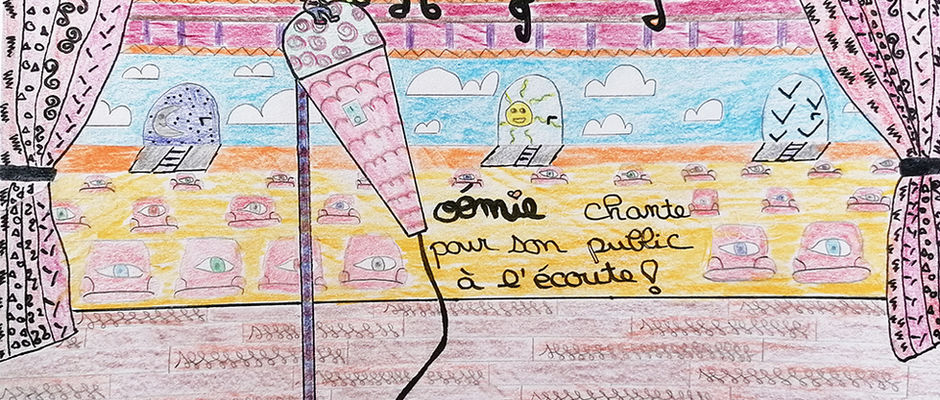 oémie chante
pour son public
à l'écoute!